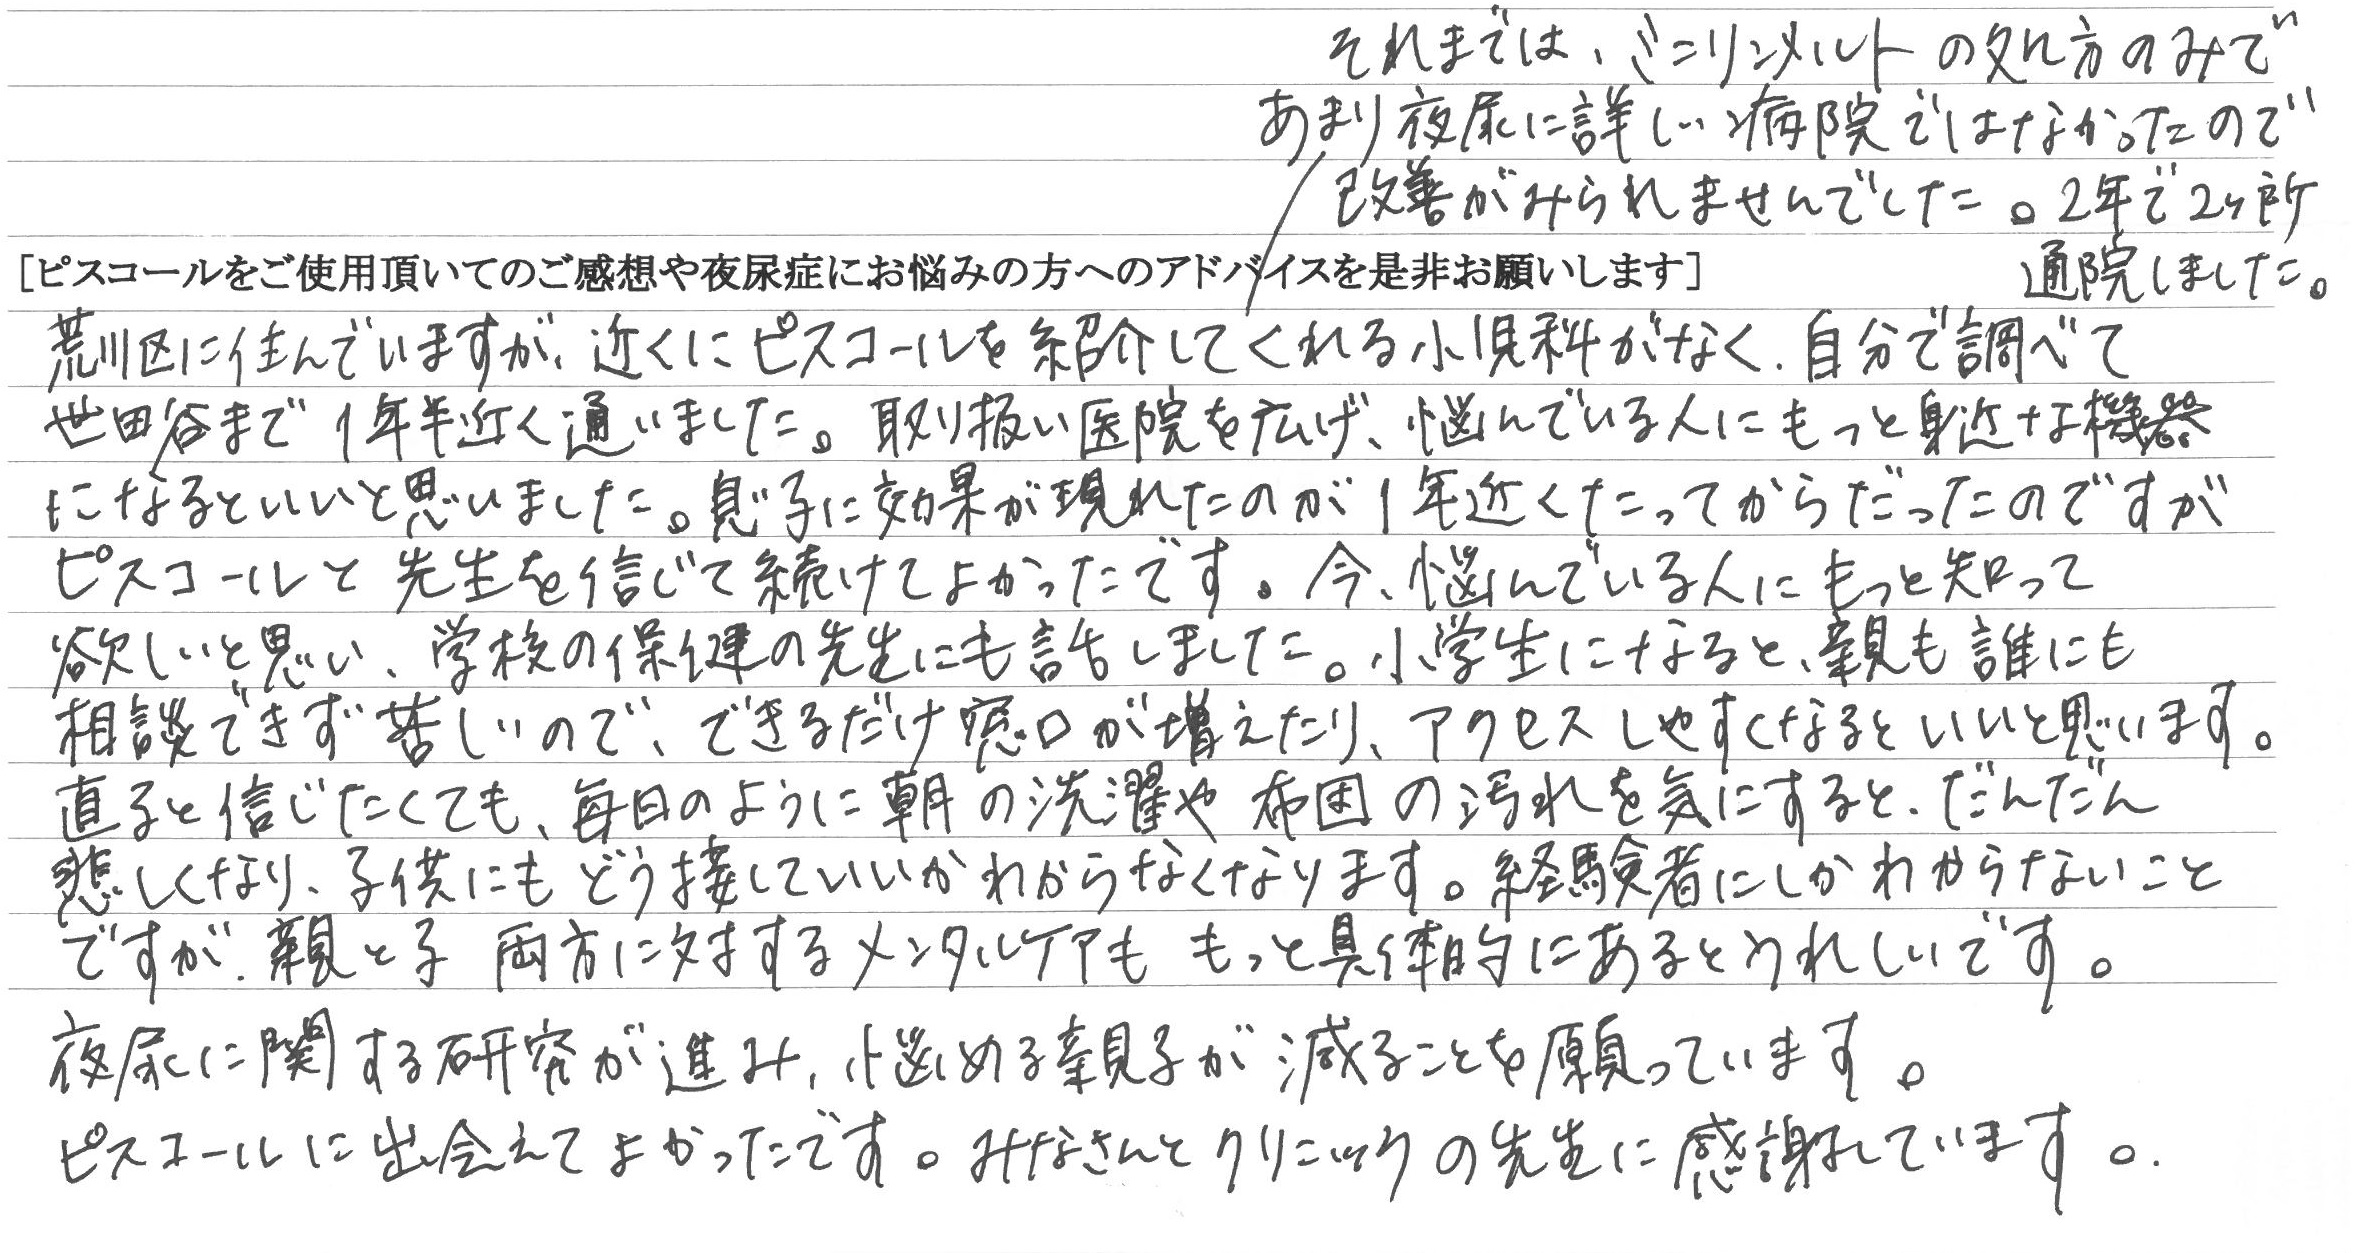 それまでは、ミニリンメルトの処方のみで
あまり夜尿に詳しい病院ではなかったので
改善がみられませんでした。2年で2ヶ所
通院しました。
[ピスコールをご使用頂いてのご感想や夜尿症にお悩みの方へのアドバイスを是非お願いします]
荒川区に住んでいますが、近くにピスコールを紹介してくれる小児科がなく、自分で調べて
世田谷まで1年半近く通いました。取り扱い医院を広げ、悩んでいる人にもっと身近な機器
になるといいと思いました。息子に効果が現れたのが1年近くたってからだったのですが
ピスコールと先生を信じて続けてよかったです。今、悩んでいる人にもっと知って
欲しいと思い、学校の保健の先生にも話しました。小学生になると、親も誰にも
相談できず苦しいので、できるだけ窓口が増えたり、アクセスしやすくなるといいと思います。
直ると信じたくても、毎日のように朝の洗濯や布団の汚れを気にすると、だんだん
悲しくなり、子供にもどう接していいかわからなくなります。経験者にしかわからないこと
ですが、親と子 両方に対するメンタルケアも もっと具体的にあるとうれしいです。
夜尿に関する研究が進み、悩める親子が減ることを願っています。
ピスコールに出会えてよかったです。みなさんとクリニックの先生に感謝しています。